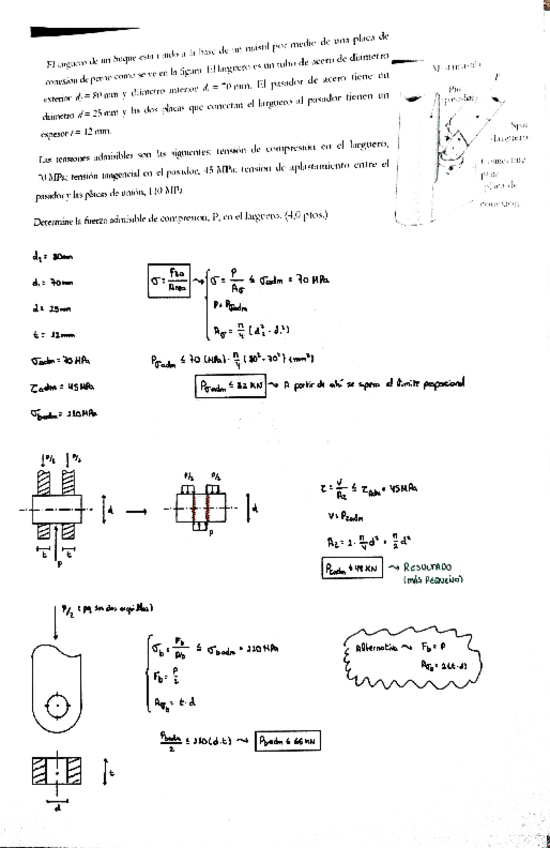 El larguero de un buque está unido a la base de un mástil por medio de una placa de
conexión de perno como se ve en la figura. El larguero es un tubo de acero de diámetro
exterior d₂ = 80 mm y diámetro interior d₁ = 70 mm. El pasador de acero tiene un
diámetro d = 25 mm y las dos placas que conectan el larguero al pasador tienen un
espesor t = 12 mm.
P
Pin
pasador
larguero
Connecting
plate
placa de
conexión
Las tensiones admisibles son las siguientes: tensión de compresión en el larguero,
70 MPa; tensión tangencial en el pasador, 45 MPa; tensión de aplastamiento entre el
pasador y las placas de unión, 110 MPa.
Determine la fuerza admisible de compresión, P, en el larguero. (4,0 ptos.)
d₂ = 80mm
d₁ = 70mm
d = 25mm
t = 12mm
σadm = 70 MPa
τadm = 45MPa
σbadm = 110MPa
σ = Fza/Área → σ = P/Aσ ≤ σadm = 70 MPa
P = Pσadm
Aσ = π/4 (d₂² - d₁²)
Pσadm ≤ 70 (MPa) · π/4 (80² - 70²) (mm²)
Pσadm ≤ 82 KN → A partir de ahí se supera el límite proporcional
P/2 P/2
d
t t
P
P/2 P/2
d
P
τ = V/Aτ ≤ τadm = 45MPa
V = Pτadm
Aτ = 2 · π/4 d² = π/2 d²
Pτadm ≤ 44 KN → RESULTADO
(más pequeño)
P/2 (pq son dos orejillas)
t
d
σb = Fb/Ab ≤ σbadm = 110MPa
Fb = P/2
Aσb = t · d
Pbadm/2 ≤ 110 (d·t) → Pbadm ≤ 66 KN
Alternativa → Fb = P
Aσb = 2(t·d)